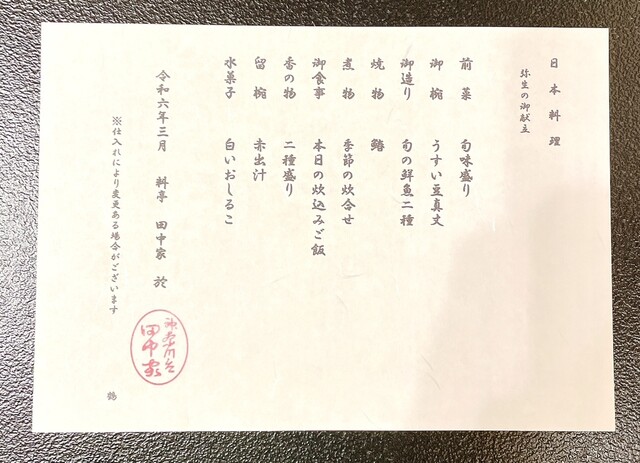 日本料理
弥生の御献立
前菜 旬味盛り
御椀 うすい豆真丈
御造り 旬の鮮魚二種
焼物 鰆
煮物 季節の炊合せ
御食事 本日の炊込みご飯
香の物 二種盛り
留椀 赤出汁
水菓子 白いおしるこ
令和六年三月 料亭 田中家 於
※仕入れにより変更ある場合がございます
神奈川台
田中家
鶴